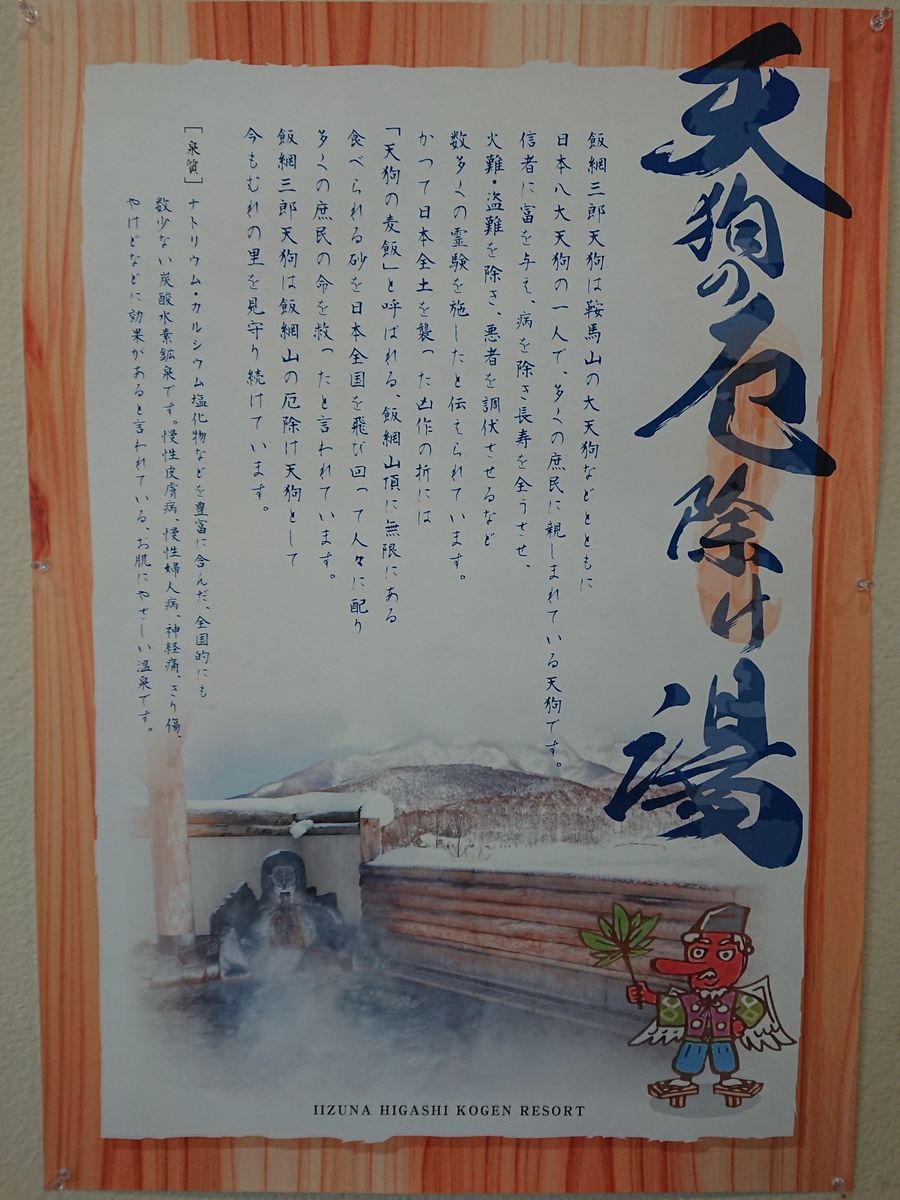 天狗の厄除け湯
飯綱三郎天狗は鞍馬山の大天狗などとともに
日本八大天狗の一人で、多くの庶民に親しまれている天狗です。
信者に富を与え、病を除き長寿を全うさせ、
火難・盗難を除き、悪者を調伏させるなど
数多くの霊験を施したと伝えられています。
かつて日本全土を襲った凶作の折には
「天狗の麦飯」と呼ばれる、飯綱山頂に無限にある
食べられる砂を日本全国を飛び回って人々に配り
多くの庶民の命を救ったと言われています。
飯綱三郎天狗は飯綱山の厄除け天狗として
今もむれの里を見守り続けています。
［泉質］ ナトリウム・カルシウム塩化物などを豊富に含んだ、全国的にも
数少ない炭酸水素鉱泉です。慢性皮膚病、慢性婦人病、神経痛、きり傷、
やけどなどに効果があると言われている、お肌にやさしい温泉です。
IIZUNA HIGASHI KOGEN RESORT